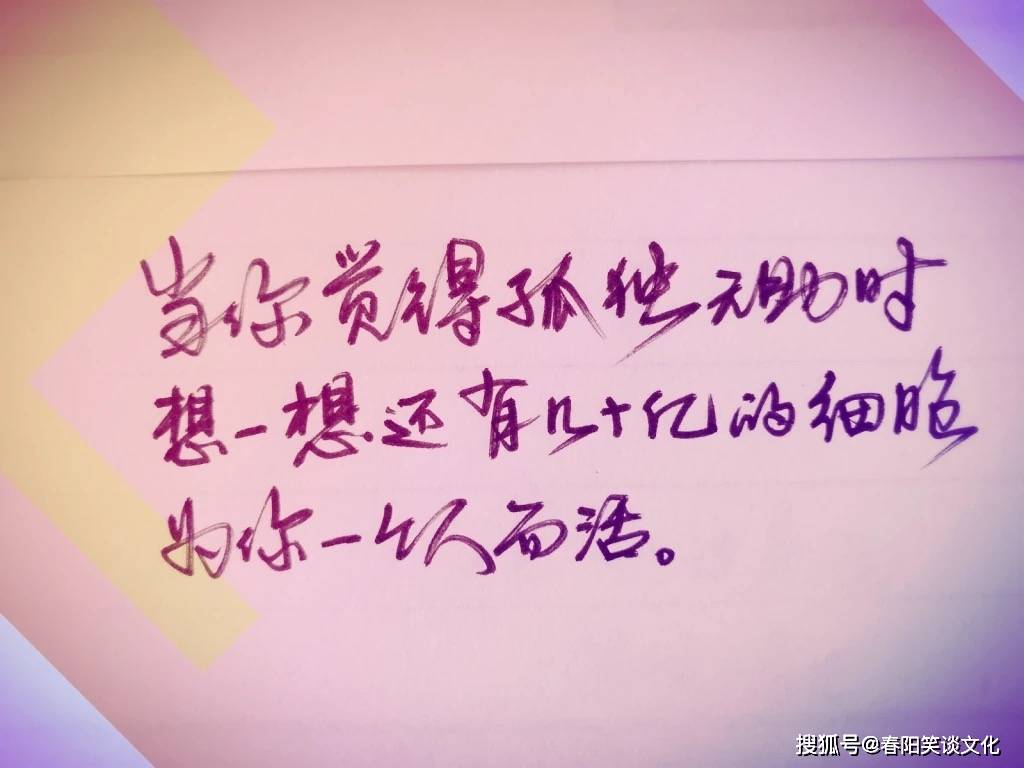 当你觉得孤独无助时
想一想还有几十亿的细胞
为你一个人而活。
搜狐号@春阳笑谈文化